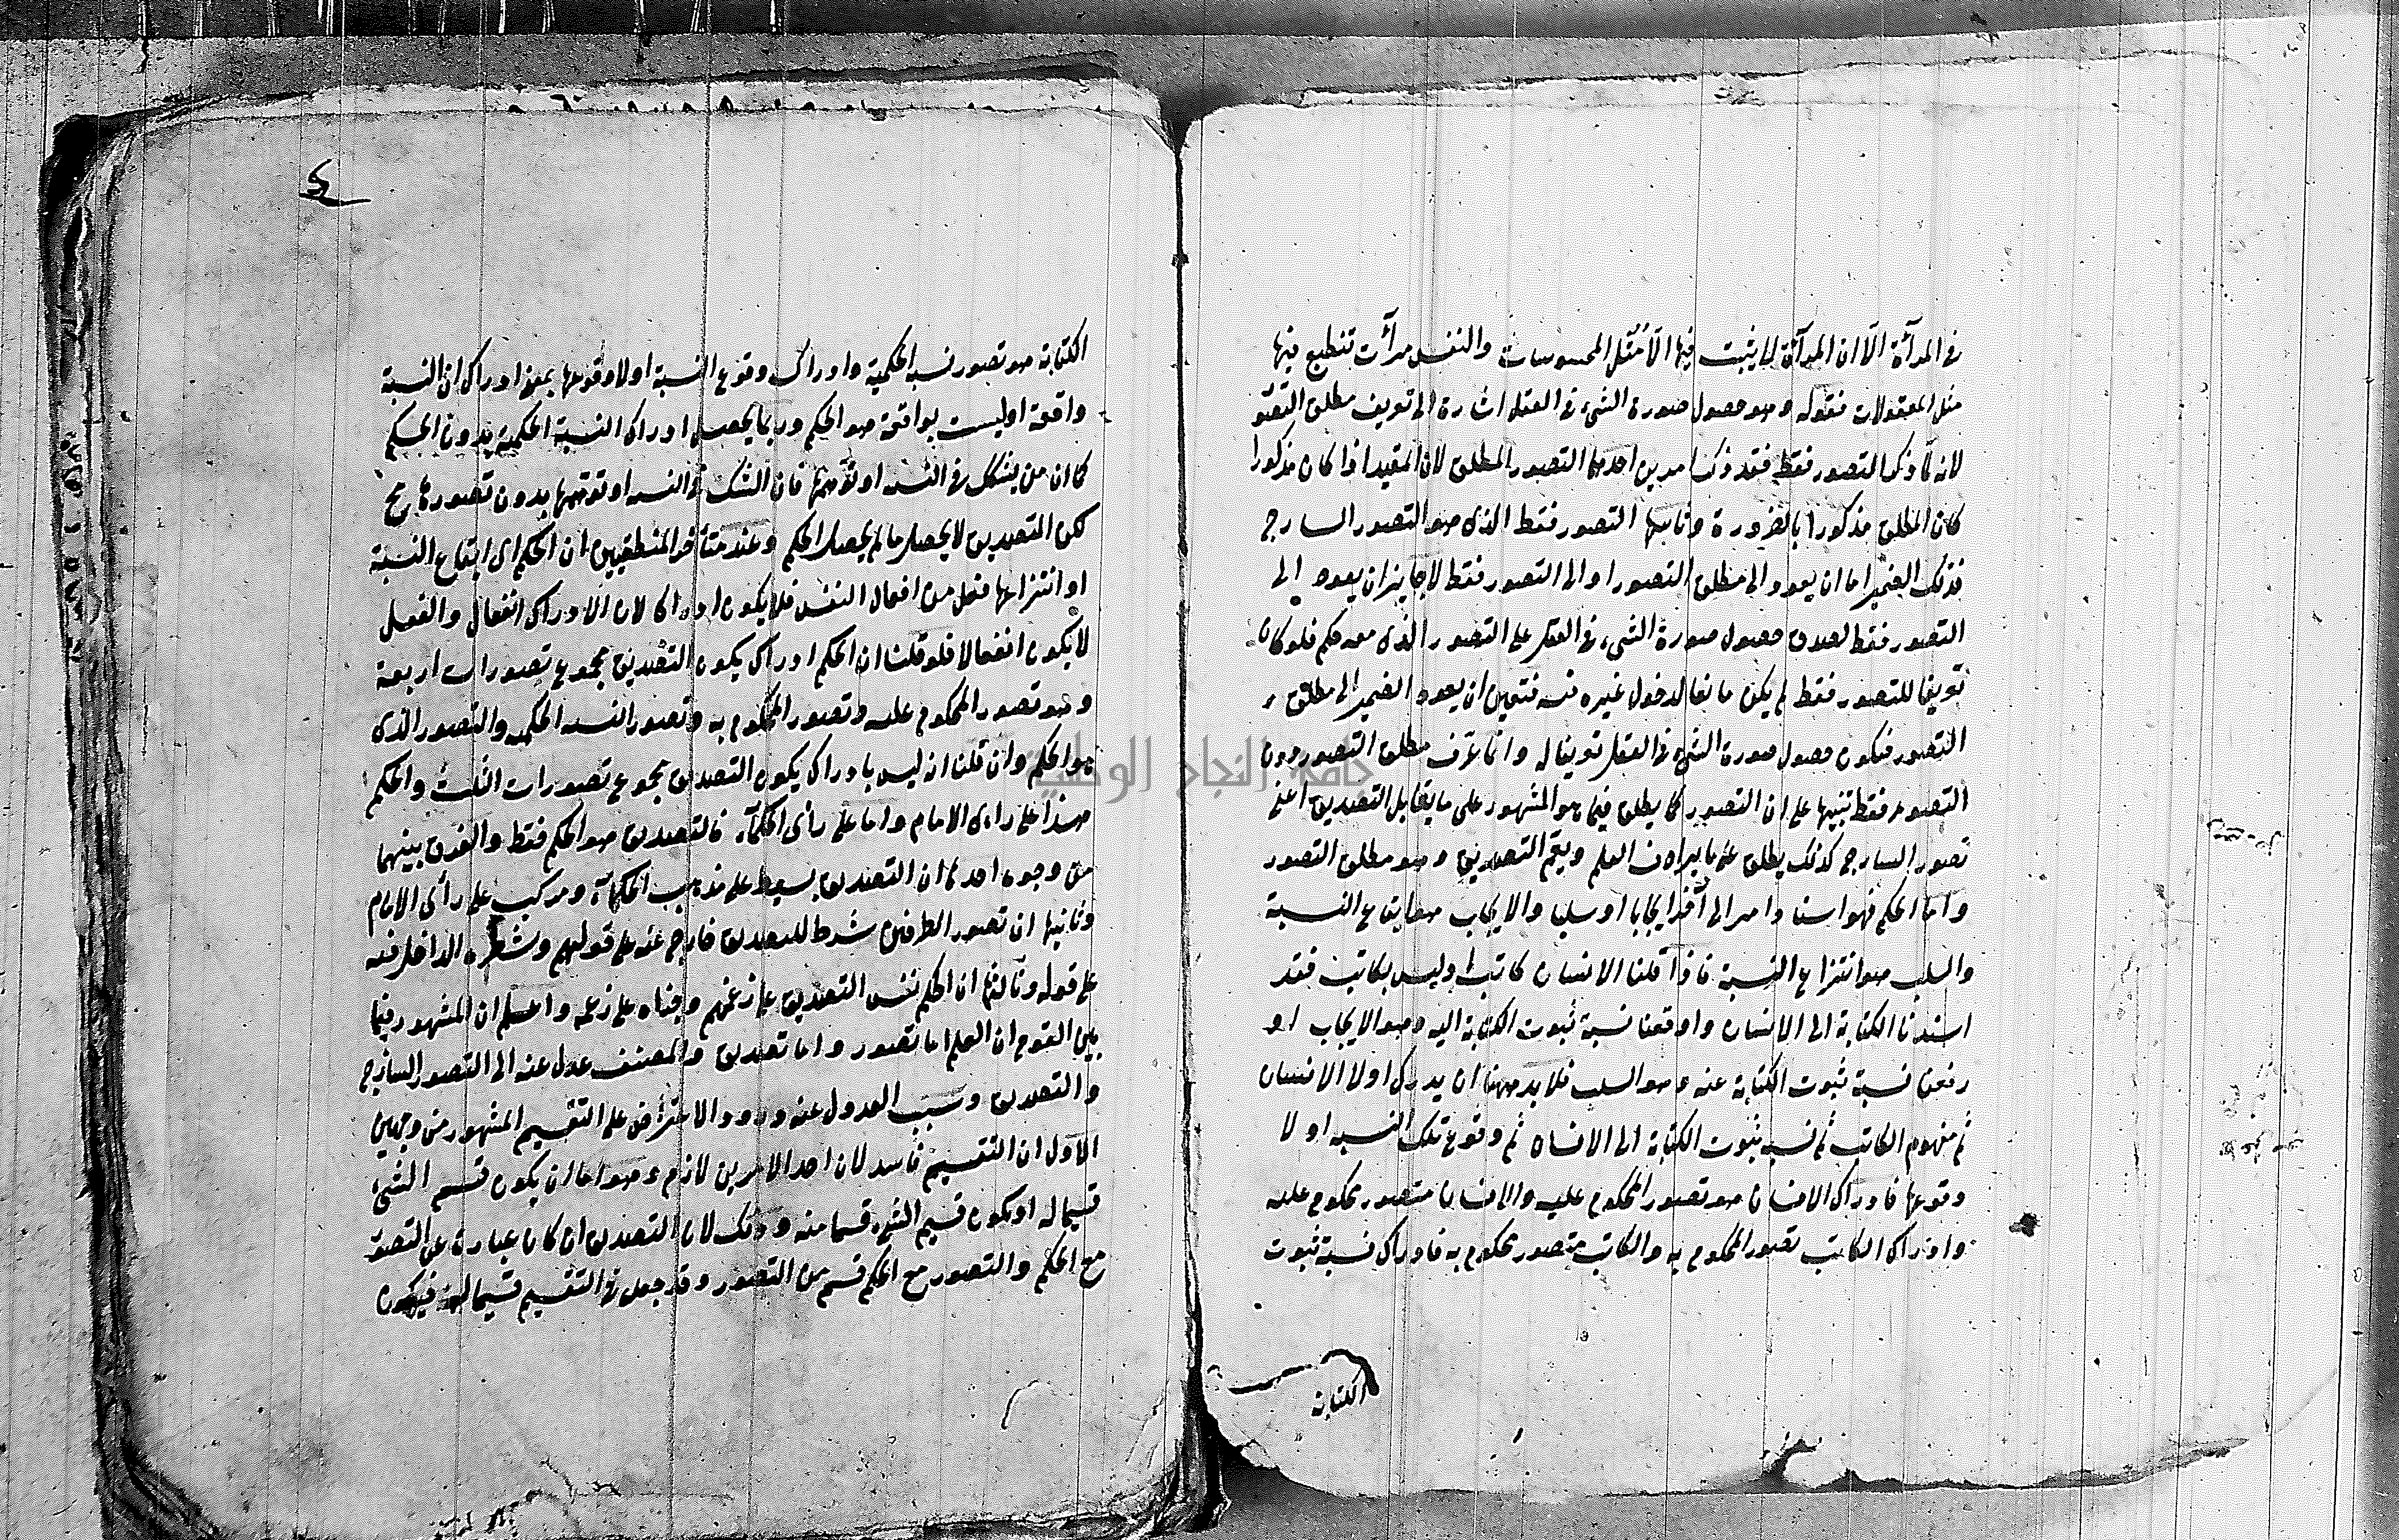 في المرآة الا ان المرآة لا يثبت فيها الا مثل المحسوسات والنفس مرآت تنطبع فيها
مثل المعقولات فقوله وهو حصول صورة الشيء في العقل اشارة الى تعريف مطلق التصو
لانه لما ذكر التصور فقط فقد ذكر امرين احدهما التصور المطلق لان المقيد اذا كان مذكورا
كان المطلق مذكورا بالضرورة وثانيها التصور فقط الذي هو التصور السارج
فذلك الضمير اما ان يعود الى مطلق التصور او الى التصور فقط لا جايز ان يعود الى
التصور فقط لصدق حصول صورة الشيء في العقل على التصور الذي معه حكم فلو كان
تعريفا للتصور فقط لم يكن مانعا لدخول غيره فيه فتعين ان يعود الضمير الى مطلق
التصور فيكون حصول صورة الشيء في العقل تعريفا له وانما عرف مطلق التصور دون
التصور فقط تنبيها على ان التصور كما يطلق فيما هو المشهور على ما يقابل التصديق اعني
تصور السارج كذلك يطلق على ما يرادف العلم ويعم التصديق وهو مطلق التصور
واما الحكم فهو اسناد امر الى آخر ايجابا او سلبا والايجاب هو ايقاع النسبة
والسلب هو انتزاع النسبة فاذا قلنا الانسان كاتب او ليس بكاتب فقد
اسندنا الكتابة الى الانسان واوقعنا نسبة ثبوت الكتابة اليه وهو الايجاب او
رفعنا نسبة ثبوت الكتابة عنه وهو السلب فلا بد ههنا ان يدرك اولا الانسان
ثم مفهوم الكاتب ثم نسبة ثبوت الكتابة الى الانسان ثم وقوع تلك النسبه او لا
وقوعها فادراك الانسان هو تصور المحكوم عليه والانسان متصور محكوم عليه
وادراك الكاتب تصور المحكوم به والكاتب متصور محكوم به فادراك نسبة ثبوت
الكتابة
الكتابة هو تصور نسبه الحكمية وادراك وقوع النسبة اولا وقوعها بمعنى ادراك ان النسبة
واقعة اوليست بواقعة هو الحكم وربما يحصل ادراك النسبة الحكمية بدون الحكم
كما ان من يشكك في النسبه او توهمها فان الشك في النسبه او توهمها بدون تصورها مح
لكن التصديق لا يحصل ما لم يحصل الحكم وعند متأخر المنطقيين ان الحكم اى ايقاع النسبة
او انتزاعها فعل من افعال النفس فلا يكون ادراكا لان الادراك انفعال والفعل
لا يكون انفعالا فلو قلنا ان الحكم ادراك يكون التصديق مجموع تصورات اربعة
وهو تصور المحكوم عليه وتصور المحكوم به وتصور النسبه الحكميه والتصور الذى
هو الحكم وان قلنا انه ليس بادراك يكون التصديق مجموع تصورات الثلث والحكم
هذا على راى الامام واما على رأى الحكمآء فالتصديق هو الحكم فقط والفرق بينهما
من وجوه احدها ان التصديق بسيط على مذهب الحكمآء ومركب على رأى الامام
وثانيها ان تصور الطرفين شرط للتصديق خارج عنه على قولهم وشطره الداخل فيه
على قوله وثالثها ان الحكم نفس التصديق على زعمهم وجزاه على زعمه واعلم ان المشهور فيما
بين القوم ان العلم اما تصور واما تصديق والمصنف عدل عنه الى التصور السازج
والتصديق وسبب العدول عنه ورود الاعتراض على التقسيم المشهور من وجهين
الاول ان التقسيم فاسد لان احد الامرين لازم وهو اما ان يكون قسم الشيء
قسيما له او يكون قسيم الشيء قسما منه وذلك لان التصديق ان كان عبارة عن التصو
مع الحكم والتصور مع الحكم قسم من التصور وقد جعل في التقسيم قسيما له فيكون
جامعة النجاح الوطنية